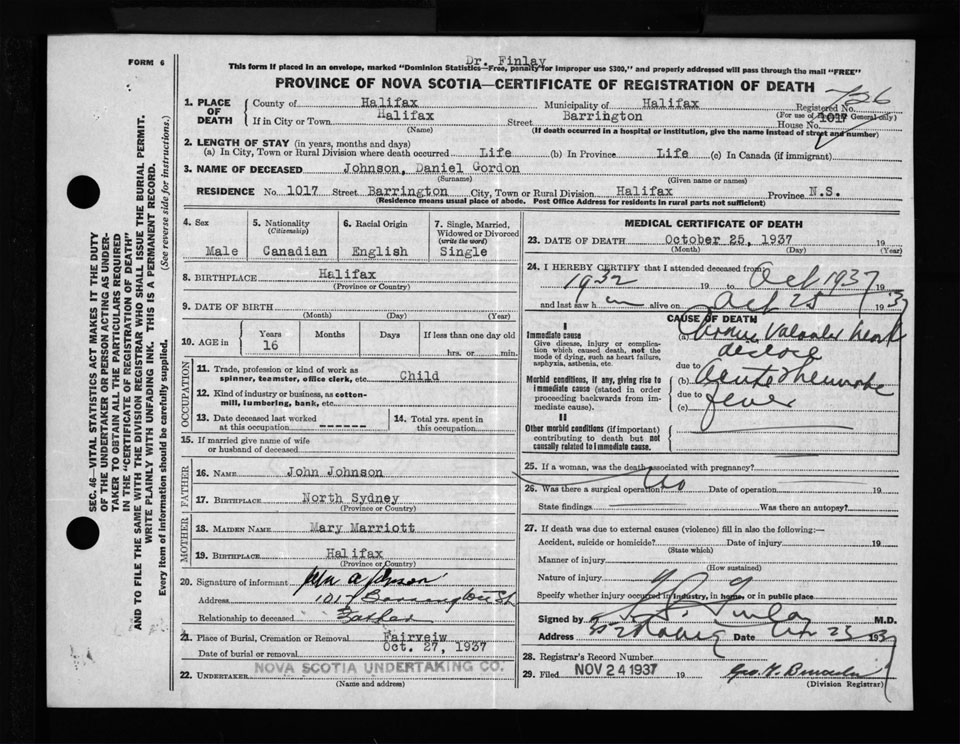 FORM 6
Dr. Finlay
This form if placed in an envelope, marked "Dominion Statistics—Free, penalty for improper use $300," and properly addressed will pass through the mail "FREE"
PROVINCE OF NOVA SCOTIA—CERTIFICATE OF REGISTRATION OF DEATH
1. PLACE OF DEATH
County of Halifax Municipality of Halifax Registered No.
(For use of Registrar General only)
If in City or Town Halifax Street Barrington House No. 1017
(Name) (If death occurred in a hospital or institution, give the name instead of street and number)
2. LENGTH OF STAY (in years, months and days)
(a) In City, Town or Rural Division where death occurred Life (b) In Province Life (c) In Canada (if immigrant)
3. NAME OF DECEASED Johnson, Daniel Gordon
(Surname) (Given name or names)
RESIDENCE No. 1017 Street Barrington City, Town or Rural Division Halifax Province N.S.
(Residence means usual place of abode. Post Office Address for residents in rural parts not sufficient)
4. Sex
Male
5. Nationality
(Citizenship)
Canadian
6. Racial Origin
English
7. Single, Married,
Widowed or Divorced
(write the word)
Single
8. BIRTHPLACE Halifax
(Province or Country)
9. DATE OF BIRTH
(Month) (Day) (Year)
10. AGE in Years Months Days If less than one day old
16 hrs. or min.
OCCUPATION
11. Trade, profession or kind of work as
spinner, teamster, office clerk, etc. Child
12. Kind of industry or business, as cotton-
mill, lumbering, bank, etc.
13. Date deceased last worked
at this occupation ------
14. Total yrs. spent in
this occupation
15. If married give name of wife
or husband of deceased
FATHER
16. NAME John Johnson
17. BIRTHPLACE North Sydney
(Province or Country)
MOTHER
18. MAIDEN NAME Mary Marriott
19. BIRTHPLACE Halifax
(Province or Country)
20. Signature of informant John A Johnson
Address 1017 Barrington St
Relationship to deceased Father
21. Place of Burial, Cremation or Removal Fairveiw
Date of burial or removal Oct. 27, 1937
22. UNDERTAKER NOVA SCOTIA UNDERTAKING CO.
(Name and address)
MEDICAL CERTIFICATE OF DEATH
23. DATE OF DEATH October 25, 1937 19
(Month) (Day) (Year)
24. I HEREBY CERTIFY that I attended deceased from
1932 19 to Oct 1937 19
and last saw h im alive on Oct 25 1937
CAUSE OF DEATH
I
Immediate cause
Give disease, injury or complica-
tion which caused death, not the
mode of dying, such as heart failure,
asphyxia, asthenia, etc.
(a) Chronic Valvular heart
disease
due to
Morbid conditions, if any, giving rise to
immediate cause (stated in order
proceeding backwards from im-
mediate cause).
(b) Acute Rheumatic
due to fever
(c)
II
Other morbid conditions (if important)
contributing to death but not
causally related to immediate cause.
25. If a woman, was the death associated with pregnancy?
26. Was there a surgical operation? No Date of operation 19
State findings Was there an autopsy?
27. If death was due to external causes (violence) fill in also the following:—
Accident, suicide or homicide? Date of injury 19
(State which)
Manner of injury
(How sustained)
Nature of injury
Specify whether injury occurred in industry, in home, or in public place
Signed by Finlay M.D.
Address Date 193
28. Registrar's Record Number
29. Filed NOV 24 1937 19
(Division Registrar)
SEC. 46—VITAL STATISTICS ACT MAKES IT THE DUTY
OF THE UNDERTAKER OR PERSON ACTING AS UNDER-
TAKER TO OBTAIN ALL THE PARTICULARS REQUIRED
IN THE "CERTIFICATE OF REGISTRATION OF DEATH"
AND TO FILE THE SAME WITH THE DIVISION REGISTRAR WHO SHALL ISSUE THE BURIAL PERMIT.
WRITE PLAINLY WITH UNFADING INK. THIS IS A PERMANENT RECORD.
Every item of information should be carefully supplied. (See reverse side for instructions.)